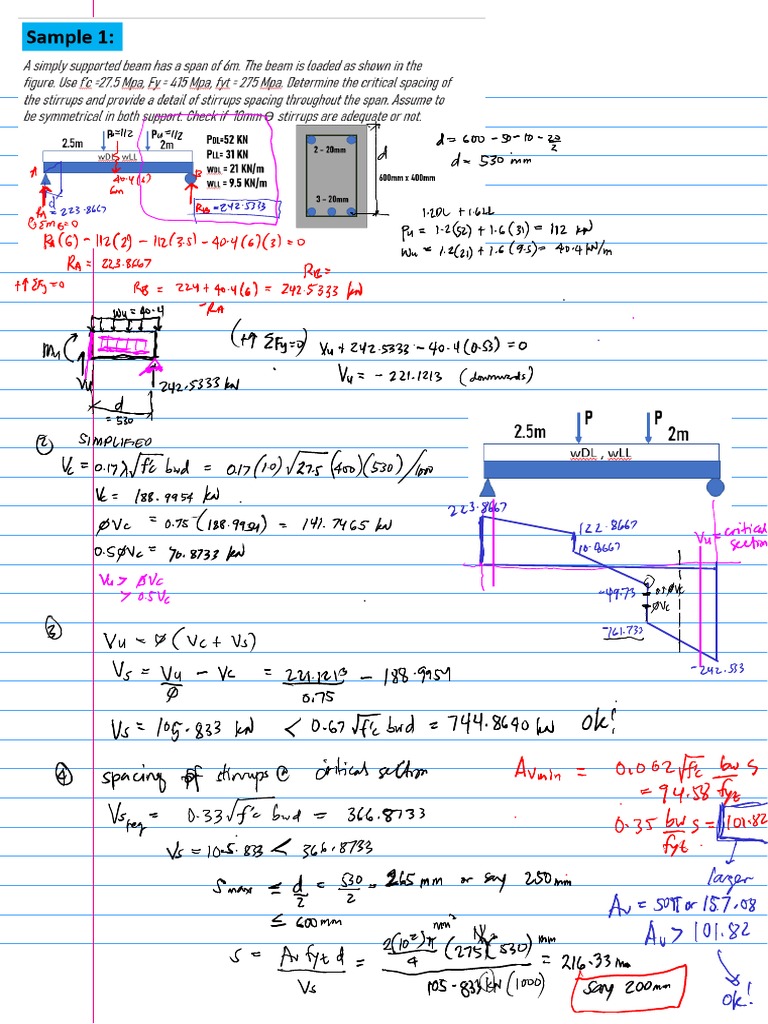 Sample 1:
A simply supported beam has a span of 6m. The beam is loaded as shown in the
figure. Use f'c =27.5 Mpa, Fy = 415 Mpa, fyt = 275 Mpa. Determine the critical spacing of
the stirrups and provide a detail of stirrups spacing throughout the span. Assume to
be symmetrical in both support. Check if 10mm Ɵ stirrups are adequate or not.
Pu=112 Pu=112
2.5m 2m
wDL wLL
40.4(6)
6m
A B
d
RA = 223.8667
RB = 242.5333
PDL=52 KN
PLL= 31 KN
wDL = 21 KN/m
wLL = 9.5 KN/m
2 – 20mm
3 – 20mm
d
600mm x 400mm
d = 600 - 50 - 10 - 20/2
d = 530 mm
1.2DL + 1.6LL
Pu = 1.2(52) + 1.6(31) = 112 kN
Wu = 1.2(21) + 1.6(9.5) = 40.4 kN/m
ΣmB=0
RA(6) - 112(2) - 112(3.5) - 40.4(6)(3) = 0
RA = 223.8667
RB =
+↑ ΣFy=0
RB = 224 + 40.4(6) = 242.5333 kN
- RA
Wu = 40.4
Mu
Vu
242.5333 kN
d
= 530
(+↑ ΣFy=0)
Vu + 242.5333 - 40.4(0.53) = 0
Vu = - 221.1213 (downwards)
② SIMPLIFIED
Vc = 0.17λ√f'c bwd = 0.17(1.0)√27.5 (400)(530)/1000
Vc = 188.9954 kN
ØVc = 0.75(188.9954) = 141.7465 kN
0.5ØVc = 70.8733 kN
Vu > ØVc
> 0.5Vc
P P
2.5m 2m
wDL , wLL
223.8667
122.8667
10.8667
Vu = critical
section
0.5ØVc
ØVc
-49.73
-161.733
-242.533
③
Vu = Ø(Vc + Vs)
Vs = Vu/Ø - Vc = 221.1213/0.75 - 188.9954
Vs = 105.833 kN < 0.67√f'c bwd = 744.8640 kN ok!
④ spacing of stirrups @ critical section
Vsreq = 0.33√f'c bwd = 366.8733
Vs = 105.833 < 366.8733
Smax ≤ d/2 = 530/2 = 265 mm or say 250 mm
≤ 600mm
S = Av fyt d / Vs = 2(10²)π/4 mm² (275)(530) mm / 105.833 kN (1000) = 216.33 mm
say 200mm
Avmin = 0.062√f'c bw s/fyt
= 94.58
0.35 bw s/fyt = 101.82
larger
Av = 50π or 157.08
Av > 101.82
ok!